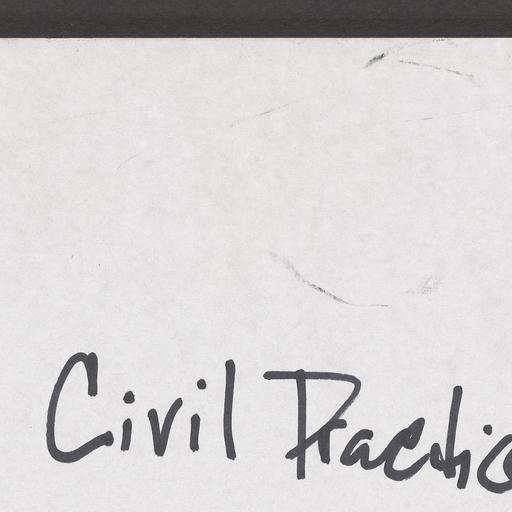 Civil Practic